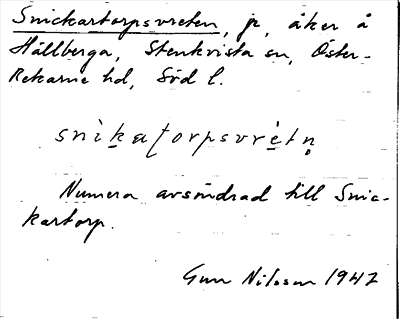 Snickartorpsvreten, p, åker å
Hällberga, Stenkvista sn, Öster-
Rekarne hd, Söd l.
snìkaʈorpsvrètn̥
Numera avsöndrad till Snic-
kartorp.
Gun Nilsson 1947